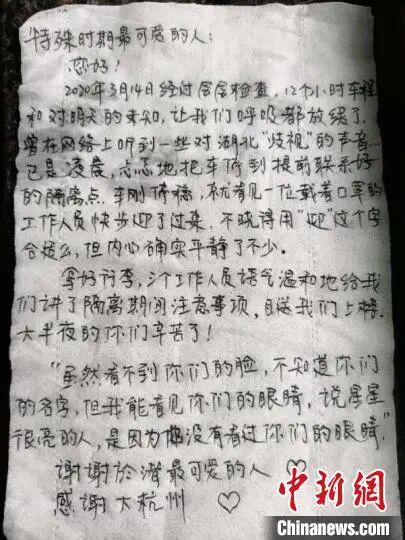 特殊时期最可爱的人：
您好！
2020年3月14日经过层层检查，12个小时车程
和对明天的未知，让我们呼吸都放缓了。
曾在网络上听到一些对湖北“歧视”的声音
已是凌晨，忐忑地把车停到提前联系好
的隔离点，车刚停稳，就看见一位戴着口罩的
工作人员快步迎了过来，不晓得用“迎”这个字
合适么，但内心确实平静了不少。
拿好行李，工作人员语气温和地给我
们讲了隔离期间注意事项，目送我们上楼。
大半夜的你们辛苦了！
“虽然看不到你们的脸，不知道你们
的名字，但我能看见你们的眼睛，说星星
很亮的人，是因为没有看过你们的眼睛”
谢谢於潜最可爱的人 ♡
感谢大杭州 ♡
中新网
Chinanews.com